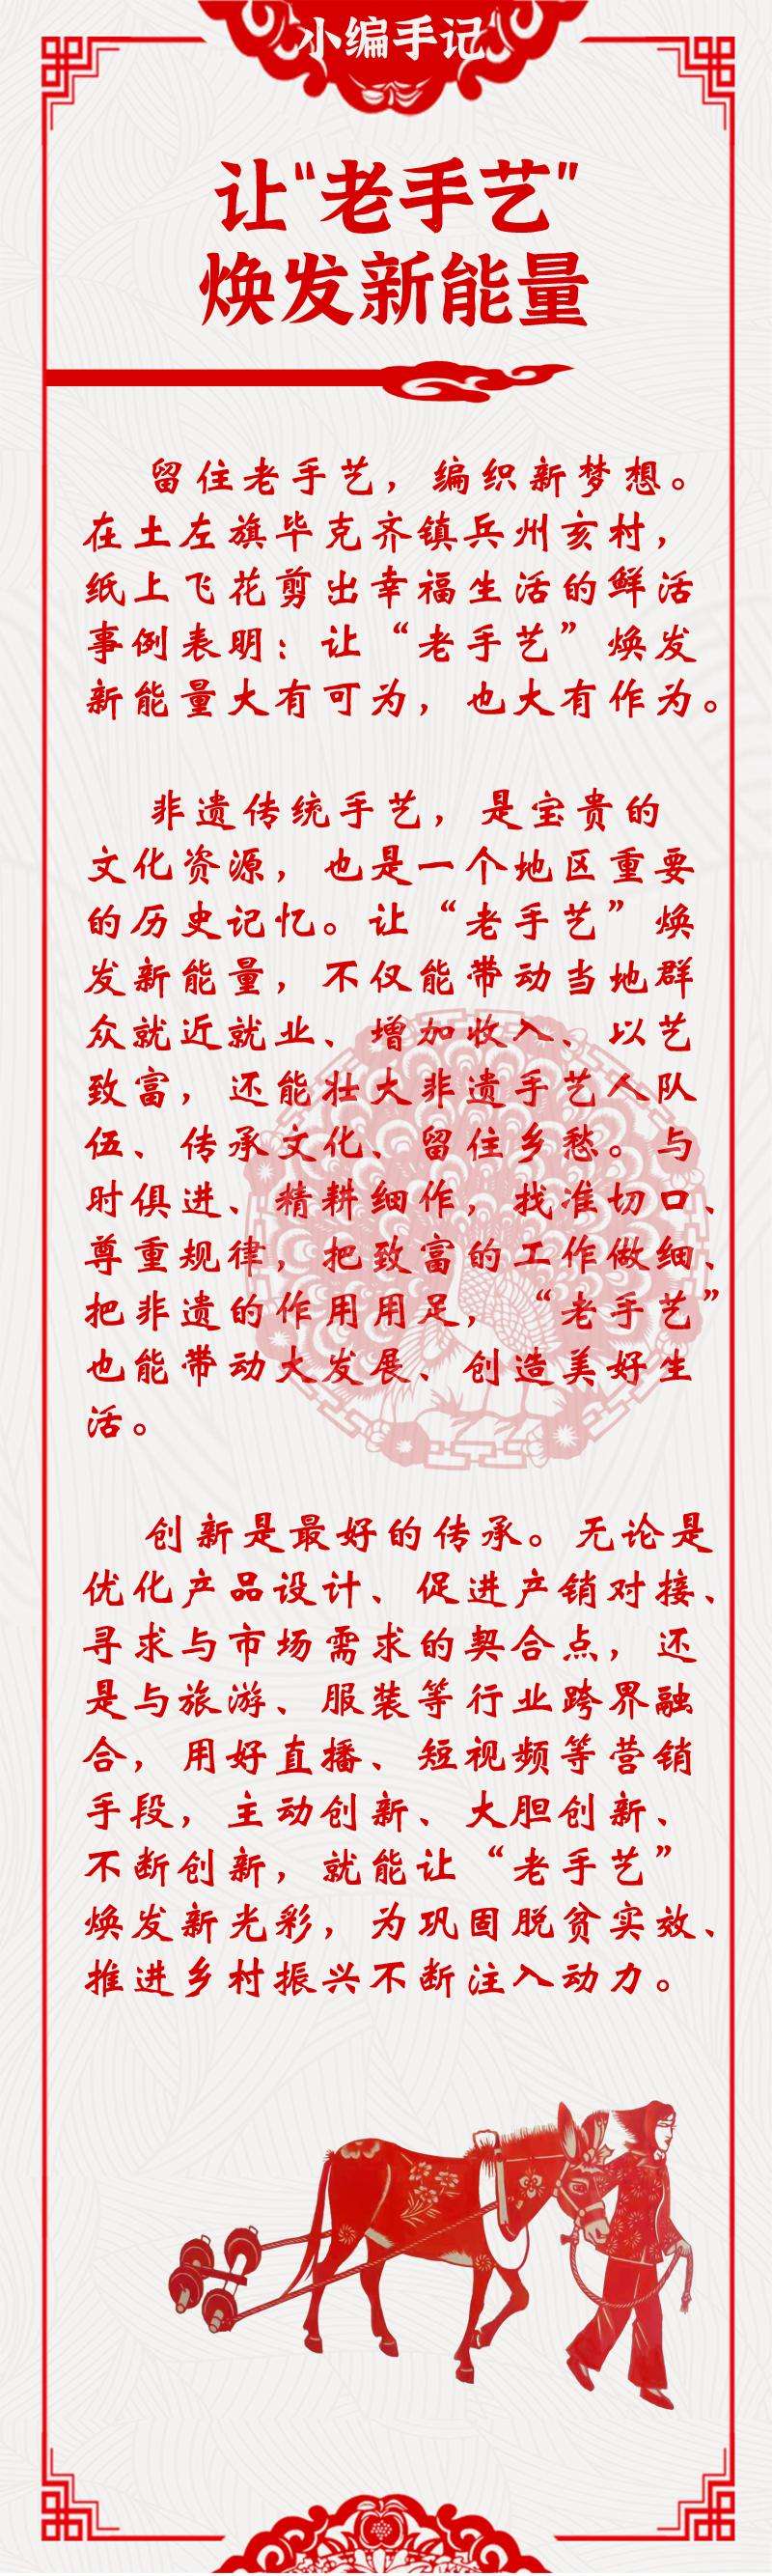 小编手记
让“老手艺”
焕发新能量
留住老手艺，编织新梦想。
在土左旗毕克齐镇兵州亥村，
纸上飞花剪出幸福生活的鲜活
事例表明：让“老手艺”焕发
新能量大有可为，也大有作为。
非遗传统手艺，是宝贵的
文化资源，也是一个地区重要
的历史记忆。让“老手艺”焕
发新能量，不仅能带动当地群
众就近就业、增加收入、以艺
致富，还能壮大非遗手艺人队
伍、传承文化、留住乡愁。与
时俱进、精耕细作，找准切口、
尊重规律，把致富的工作做细、
把非遗的作用用足，“老手艺”
也能带动大发展、创造美好生
活。
创新是最好的传承。无论是
优化产品设计、促进产销对接、
寻求与市场需求的契合点，还
是与旅游、服装等行业跨界融
合，用好直播、短视频等营销
手段，主动创新、大胆创新、
不断创新，就能让“老手艺”
焕发新光彩，为巩固脱贫实效、
推进乡村振兴不断注入动力。